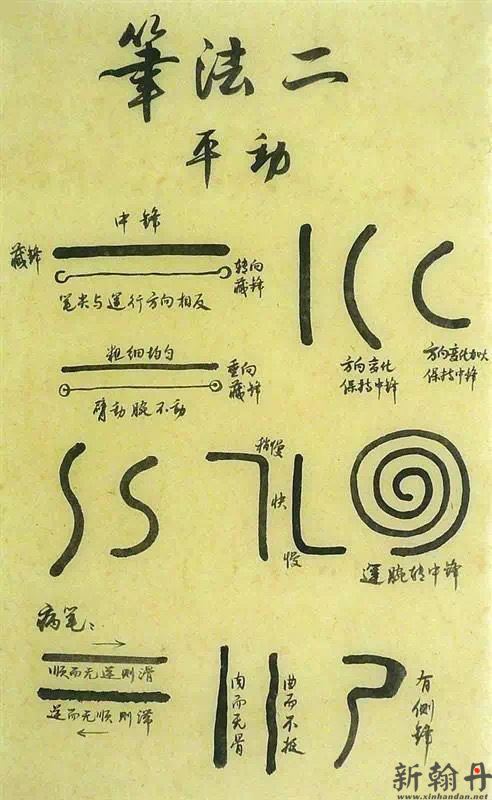 筆法二
平動
中鋒
藏鋒
转向
藏鋒
笔尖与運行方向相反
粗细均匀
垂向
藏鋒
臂动腕不动
方向变化
保持中鋒
方向变化加大
保持中鋒
稍慢
快
慢
運腕转中鋒
病笔：
顺而无逆则滑
逆而无顺则滞
肉而无骨
曲而不挺
有侧鋒
新翰丹
www.xinhandan.net